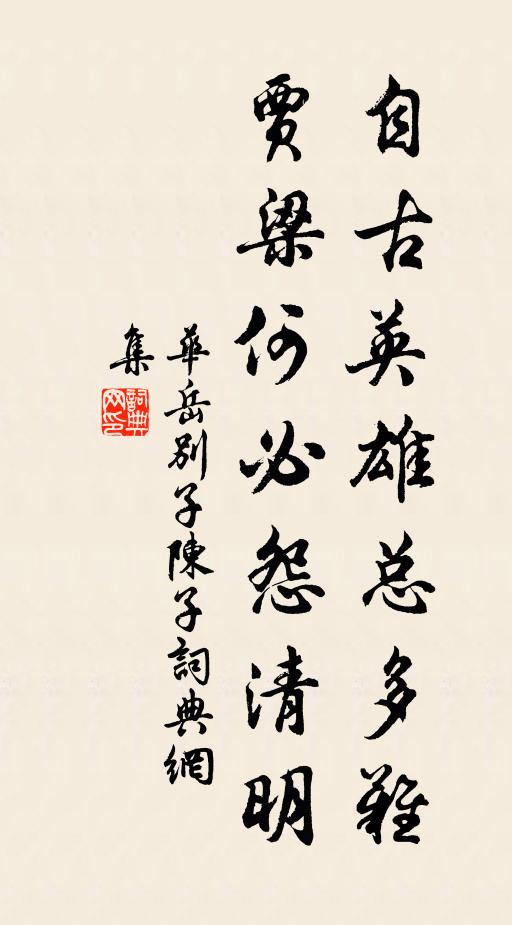 自古英雄总多難
賈梁何必怨清明
華岳別子陳子詞典網
集
詞典
网印